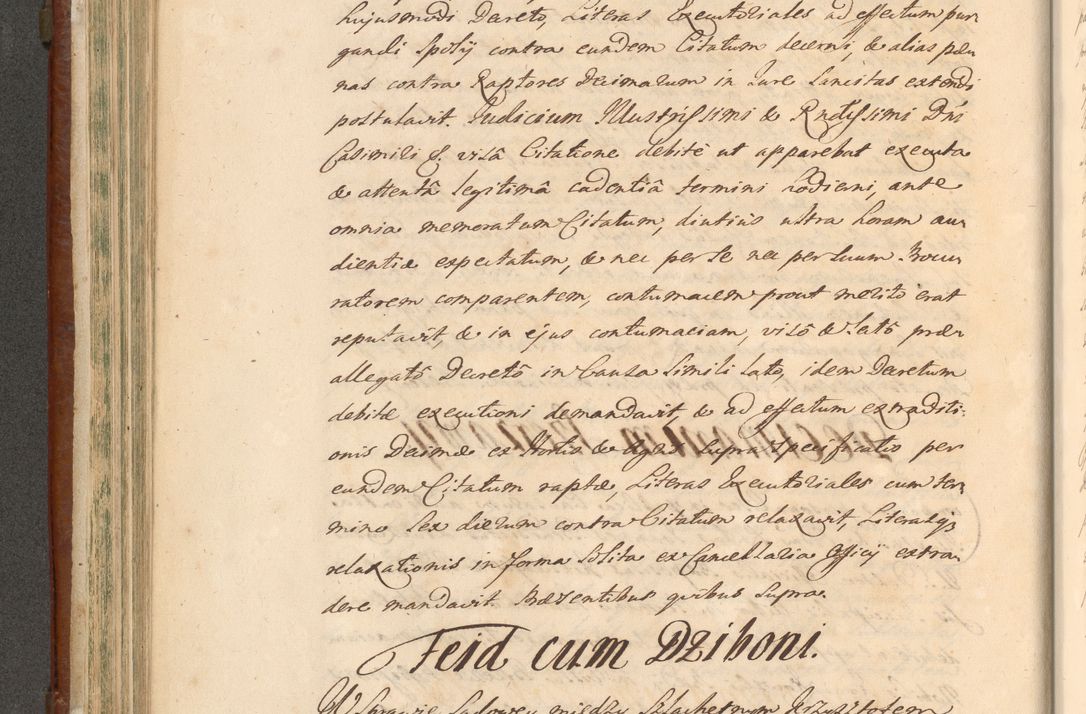 hujusmodi Decreto, Literas Executoriales ad effectum pur-
gandi spolij contra eundem Citatum decerni, & alias pæ-
nas contra Raptores Decimarum in Jure sancitas extendi
postulavit. Judicium Illustrissimi & Rndissimi Dni
Casimiri &. visâ Citatione debitè ut apparebat executa
& attentâ legitimâ cadentiâ termini hodierni, ante
omnia memoratum Citatum, diutius ultra horam au-
dientiæ expectatum, & nec per se nec per suum Procu-
ratorem comparentem, contumacem prout meritò erat
reputavit, & in ejus contumaciam, visô & lectô præ-
allegatô Decretô in Causa simili lato, idem Decretum
debitæ executioni demandavit, & ad effectum extraditi-
onis Decimæ ex Hortis & Agris supra specificatis per
eundem Citatum raptæ, Literas Executoriales cum ter-
mino sex dierum contra Citatum relaxavit, Literasq;
relaxationis in forma solita ex Cancellaria Officij extra-
dere mandavit. Præsentibus quibus supra.
Feid cum Dziboni.
W Sprawie Sądowey między Szlachetnym Krzysztofem